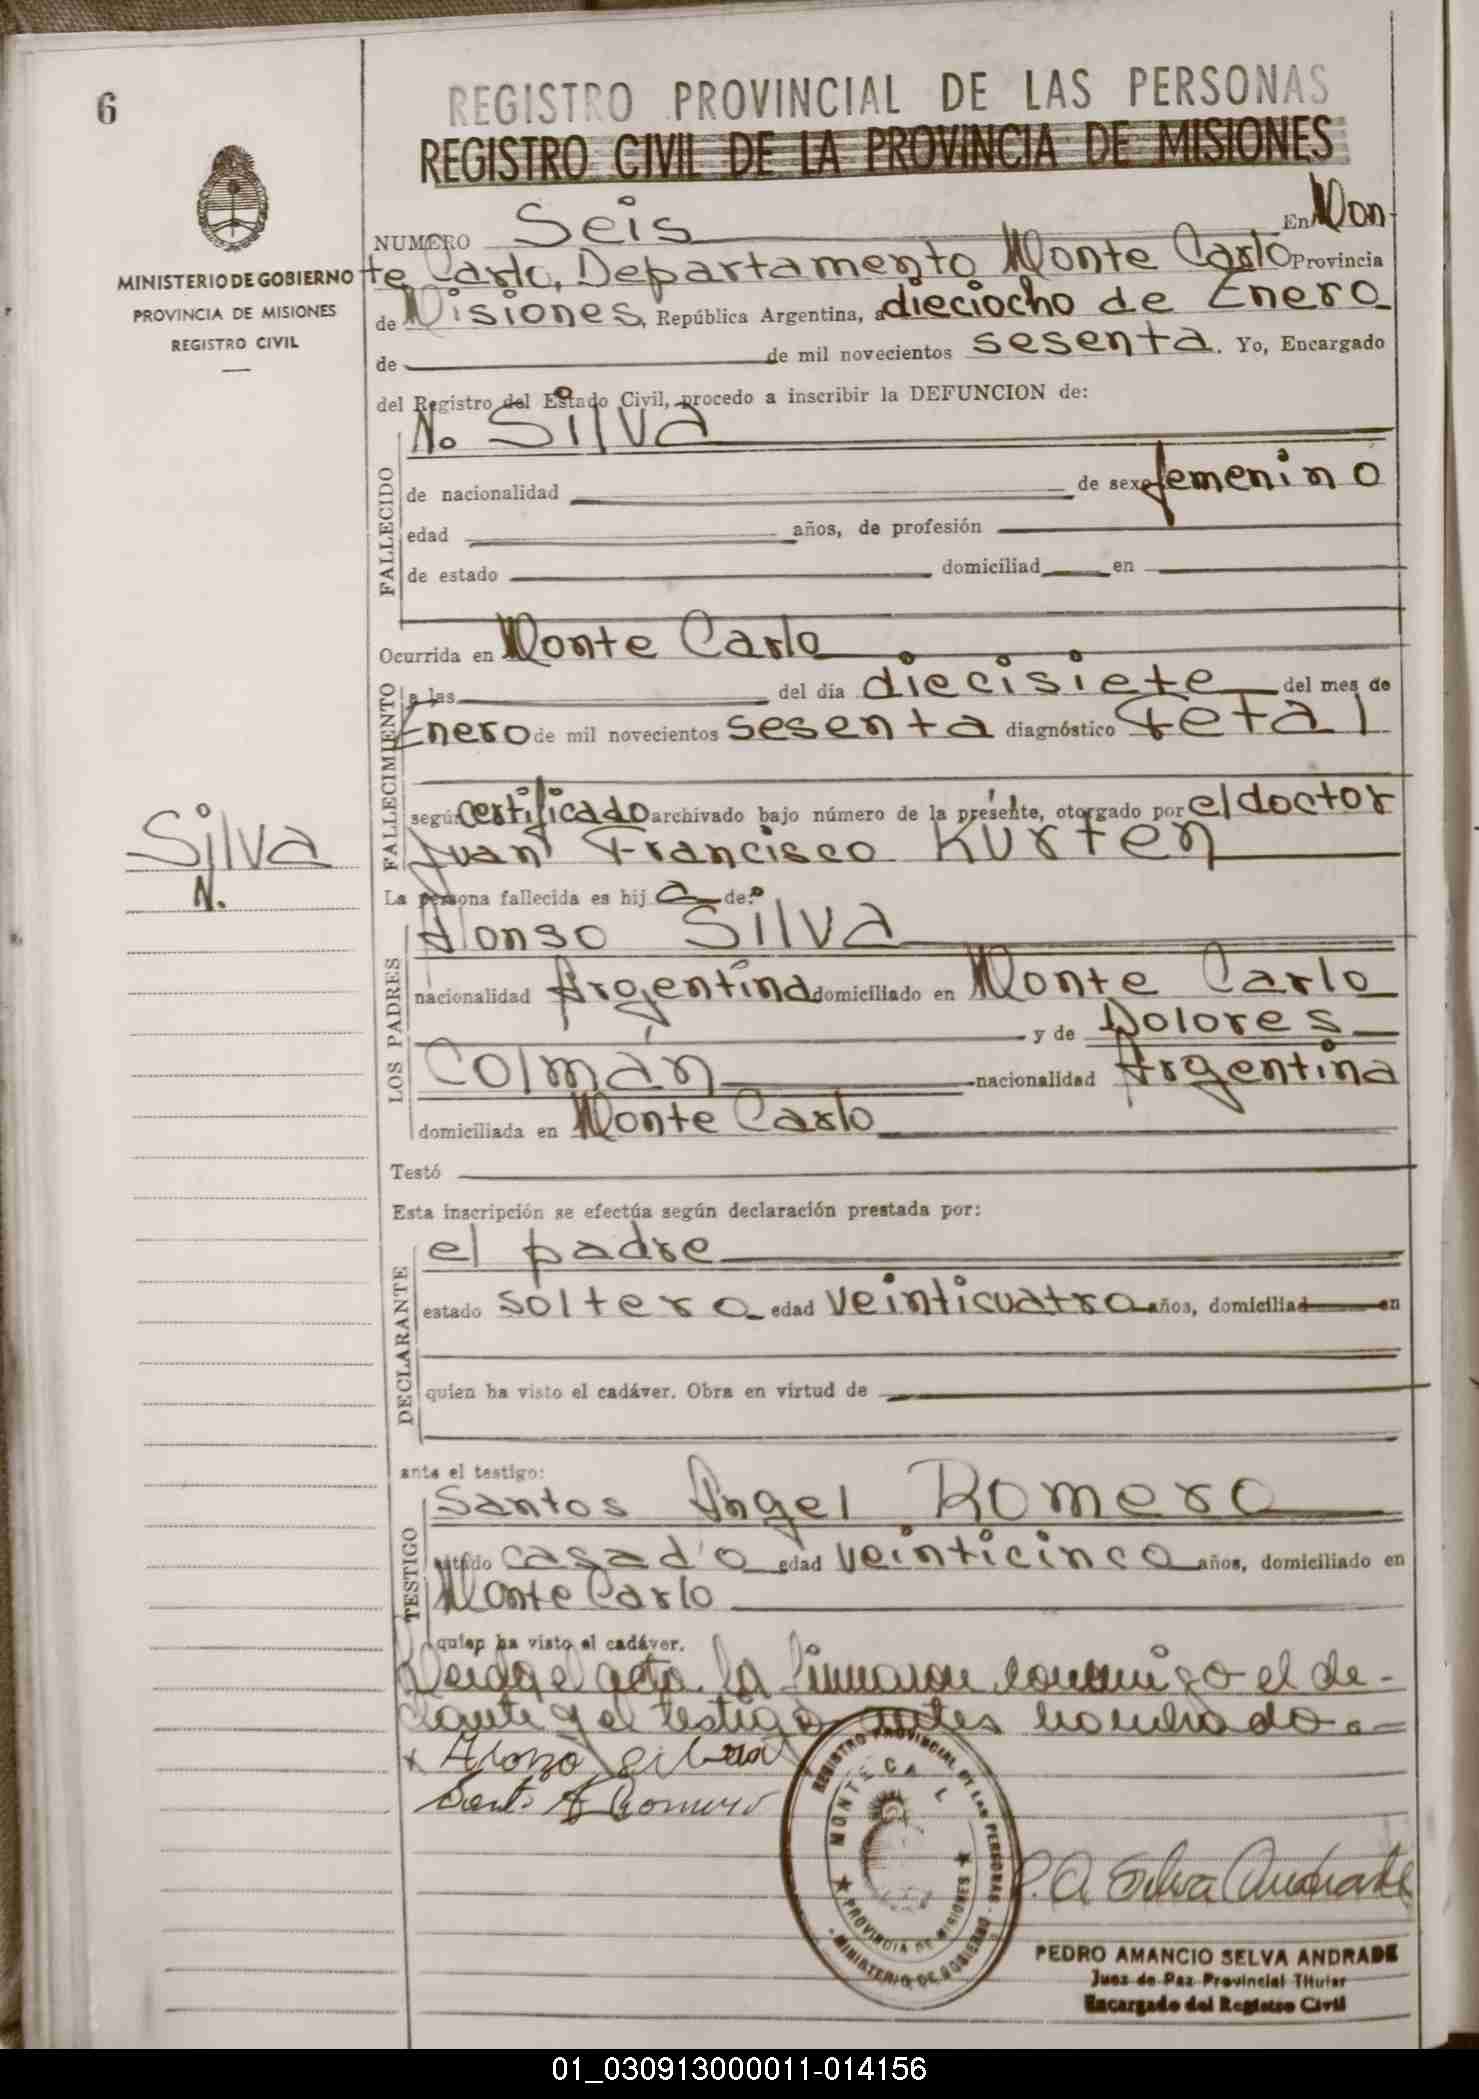 6
REGISTRO PROVINCIAL DE LAS PERSONAS
REGISTRO CIVIL DE LA PROVINCIA DE MISIONES
MINISTERIO DE GOBIERNO
PROVINCIA DE MISIONES
REGISTRO CIVIL
NUMERO Seis En Mon-
te Carlo, Departamento Monte Carlo Provincia
de Misiones, República Argentina, a dieciocho de Enero
de de mil novecientos sesenta. Yo, Encargado
del Registro del Estado Civil, procedo a inscribir la DEFUNCION de:
FALLECIDO
No Silva
de nacionalidad de sexo femenino
edad años, de profesión
de estado domiciliad en
Ocurrida en Monte Carlo
FALLECIMIENTO
a las del día diecisiete del mes de
Enero de mil novecientos sesenta diagnóstico Fetal
según certificado archivado bajo número de la presente, otorgado por el doctor
Juan Francisco Kurten
Silva
N.
La persona fallecida es hij a de:
LOS PADRES
Alonso Silva
nacionalidad Argentina domiciliado en Monte Carlo
y de Dolores
Colmán nacionalidad Argentina
domiciliada en Monte Carlo
Testó
Esta inscripción se efectúa según declaración prestada por:
DECLARANTE
el padre
estado soltero edad veinticuatro años, domiciliad en
quien ha visto el cadáver. Obra en virtud de
ante el testigo:
TESTIGO
Santos Angel Romero
estado casado edad veinticinco años, domiciliado en
Monte Carlo
quien ha visto el cadáver.
Leida el acta la firmaron conmigo el de-
clarante y el testigo antes nombrado.=
x Alonzo Silva
Sant. A Romero
REGISTRO PROVINCIAL DE LAS PERSONAS - MINISTERIO DE GOBIERNO
MONTE CA L
PROVINCIA DE MISIONES
P. A. Selva Andrade
PEDRO AMANCIO SELVA ANDRADE
Juez de Paz Provincial Titular
Encargado del Registro Civil
01_030913000011-014156